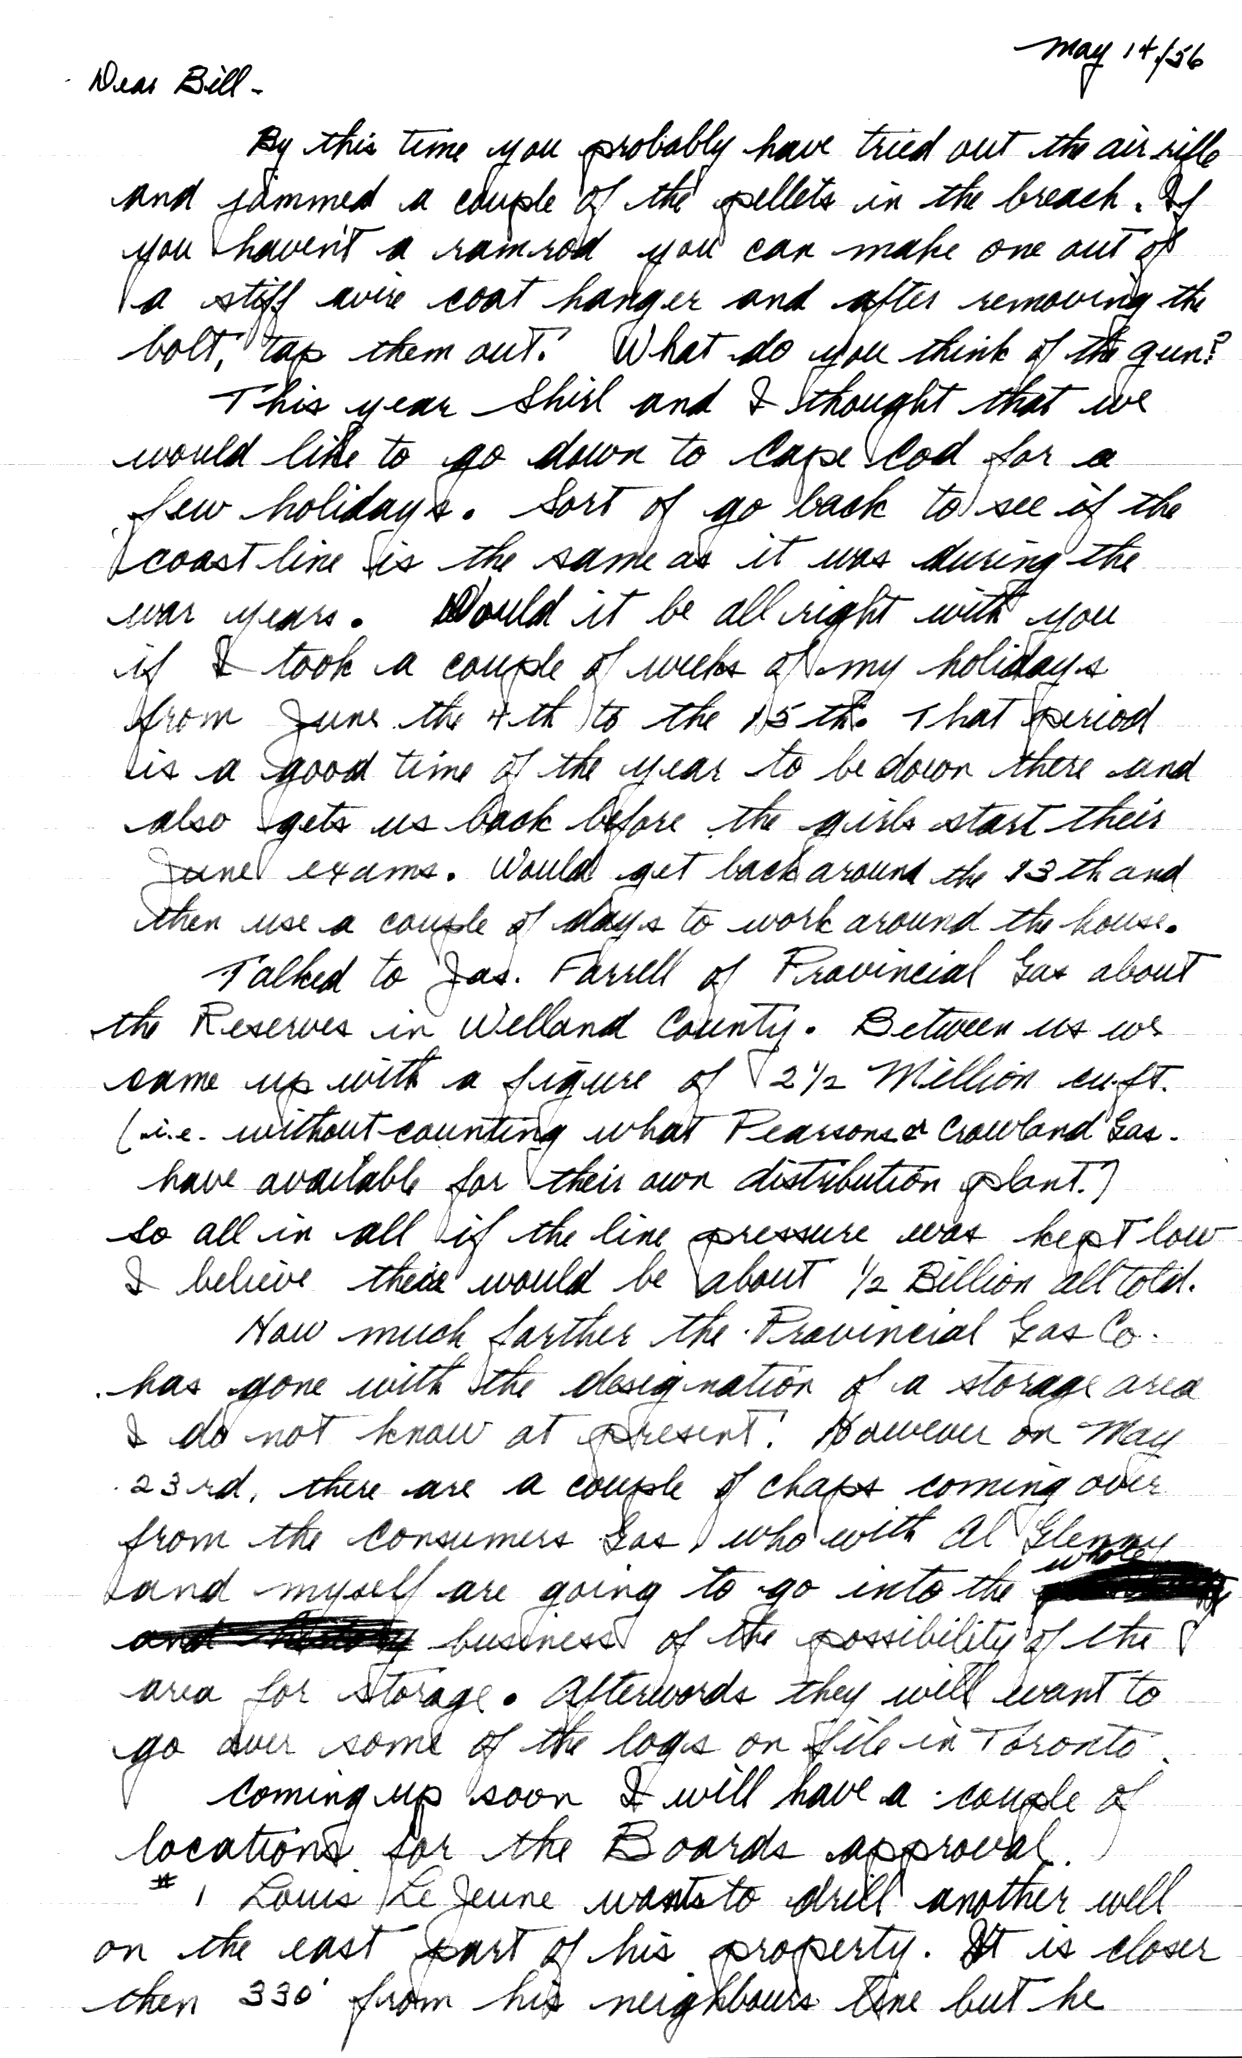 May 14/56
Dear Bill -
By this time you probably have tried out the air rifle
and jammed a couple of the pellets in the breach. If
you haven't a ramrod you can make one out of
a stiff wire coat hanger and after removing the
bolt, tap them out. What do you think of the gun?
This year Shirl and I thought that we
would like to go down to Cape Cod for a
few holidays. Sort of go back to see if the
coast line is the same as it was during the
war years. Would it be all right with you
if I took a couple of weeks of my holidays
from June the 4th to the 15th. That period
is a good time of the year to be down there and
also gets us back before the girls start their
June exams. Would get back around the 13th and
then use a couple of days to work around the house.
Talked to Jas. Farrell of Provincial Gas about
the Reserves in Welland County. Between us we
came up with a figure of 2 1/2 Million cu.ft.
(i.e. without counting what Pearsons & Crowland Gas.
have available for their own distribution plant.)
so all in all if the line pressure was kept low
I believe there would be about 1/2 Billion all told.
How much farther the Provincial Gas Co.
has gone with the designation of a storage area
I do not know at present. However on May
23rd, there are a couple of chaps coming over
from the Consumers Gas who with Al Glenny
and myself are going to go into the whole
and history business of the possibility of the
area for storage. Afterwords they will want to
go over some of the logs on file in Toronto.
Coming up soon I will have a couple of
locations for the Boards approval.
#1 Louis LeJeune wants to drill another well
on the east part of his property. It is closer
then 330' from his neighbours line but he